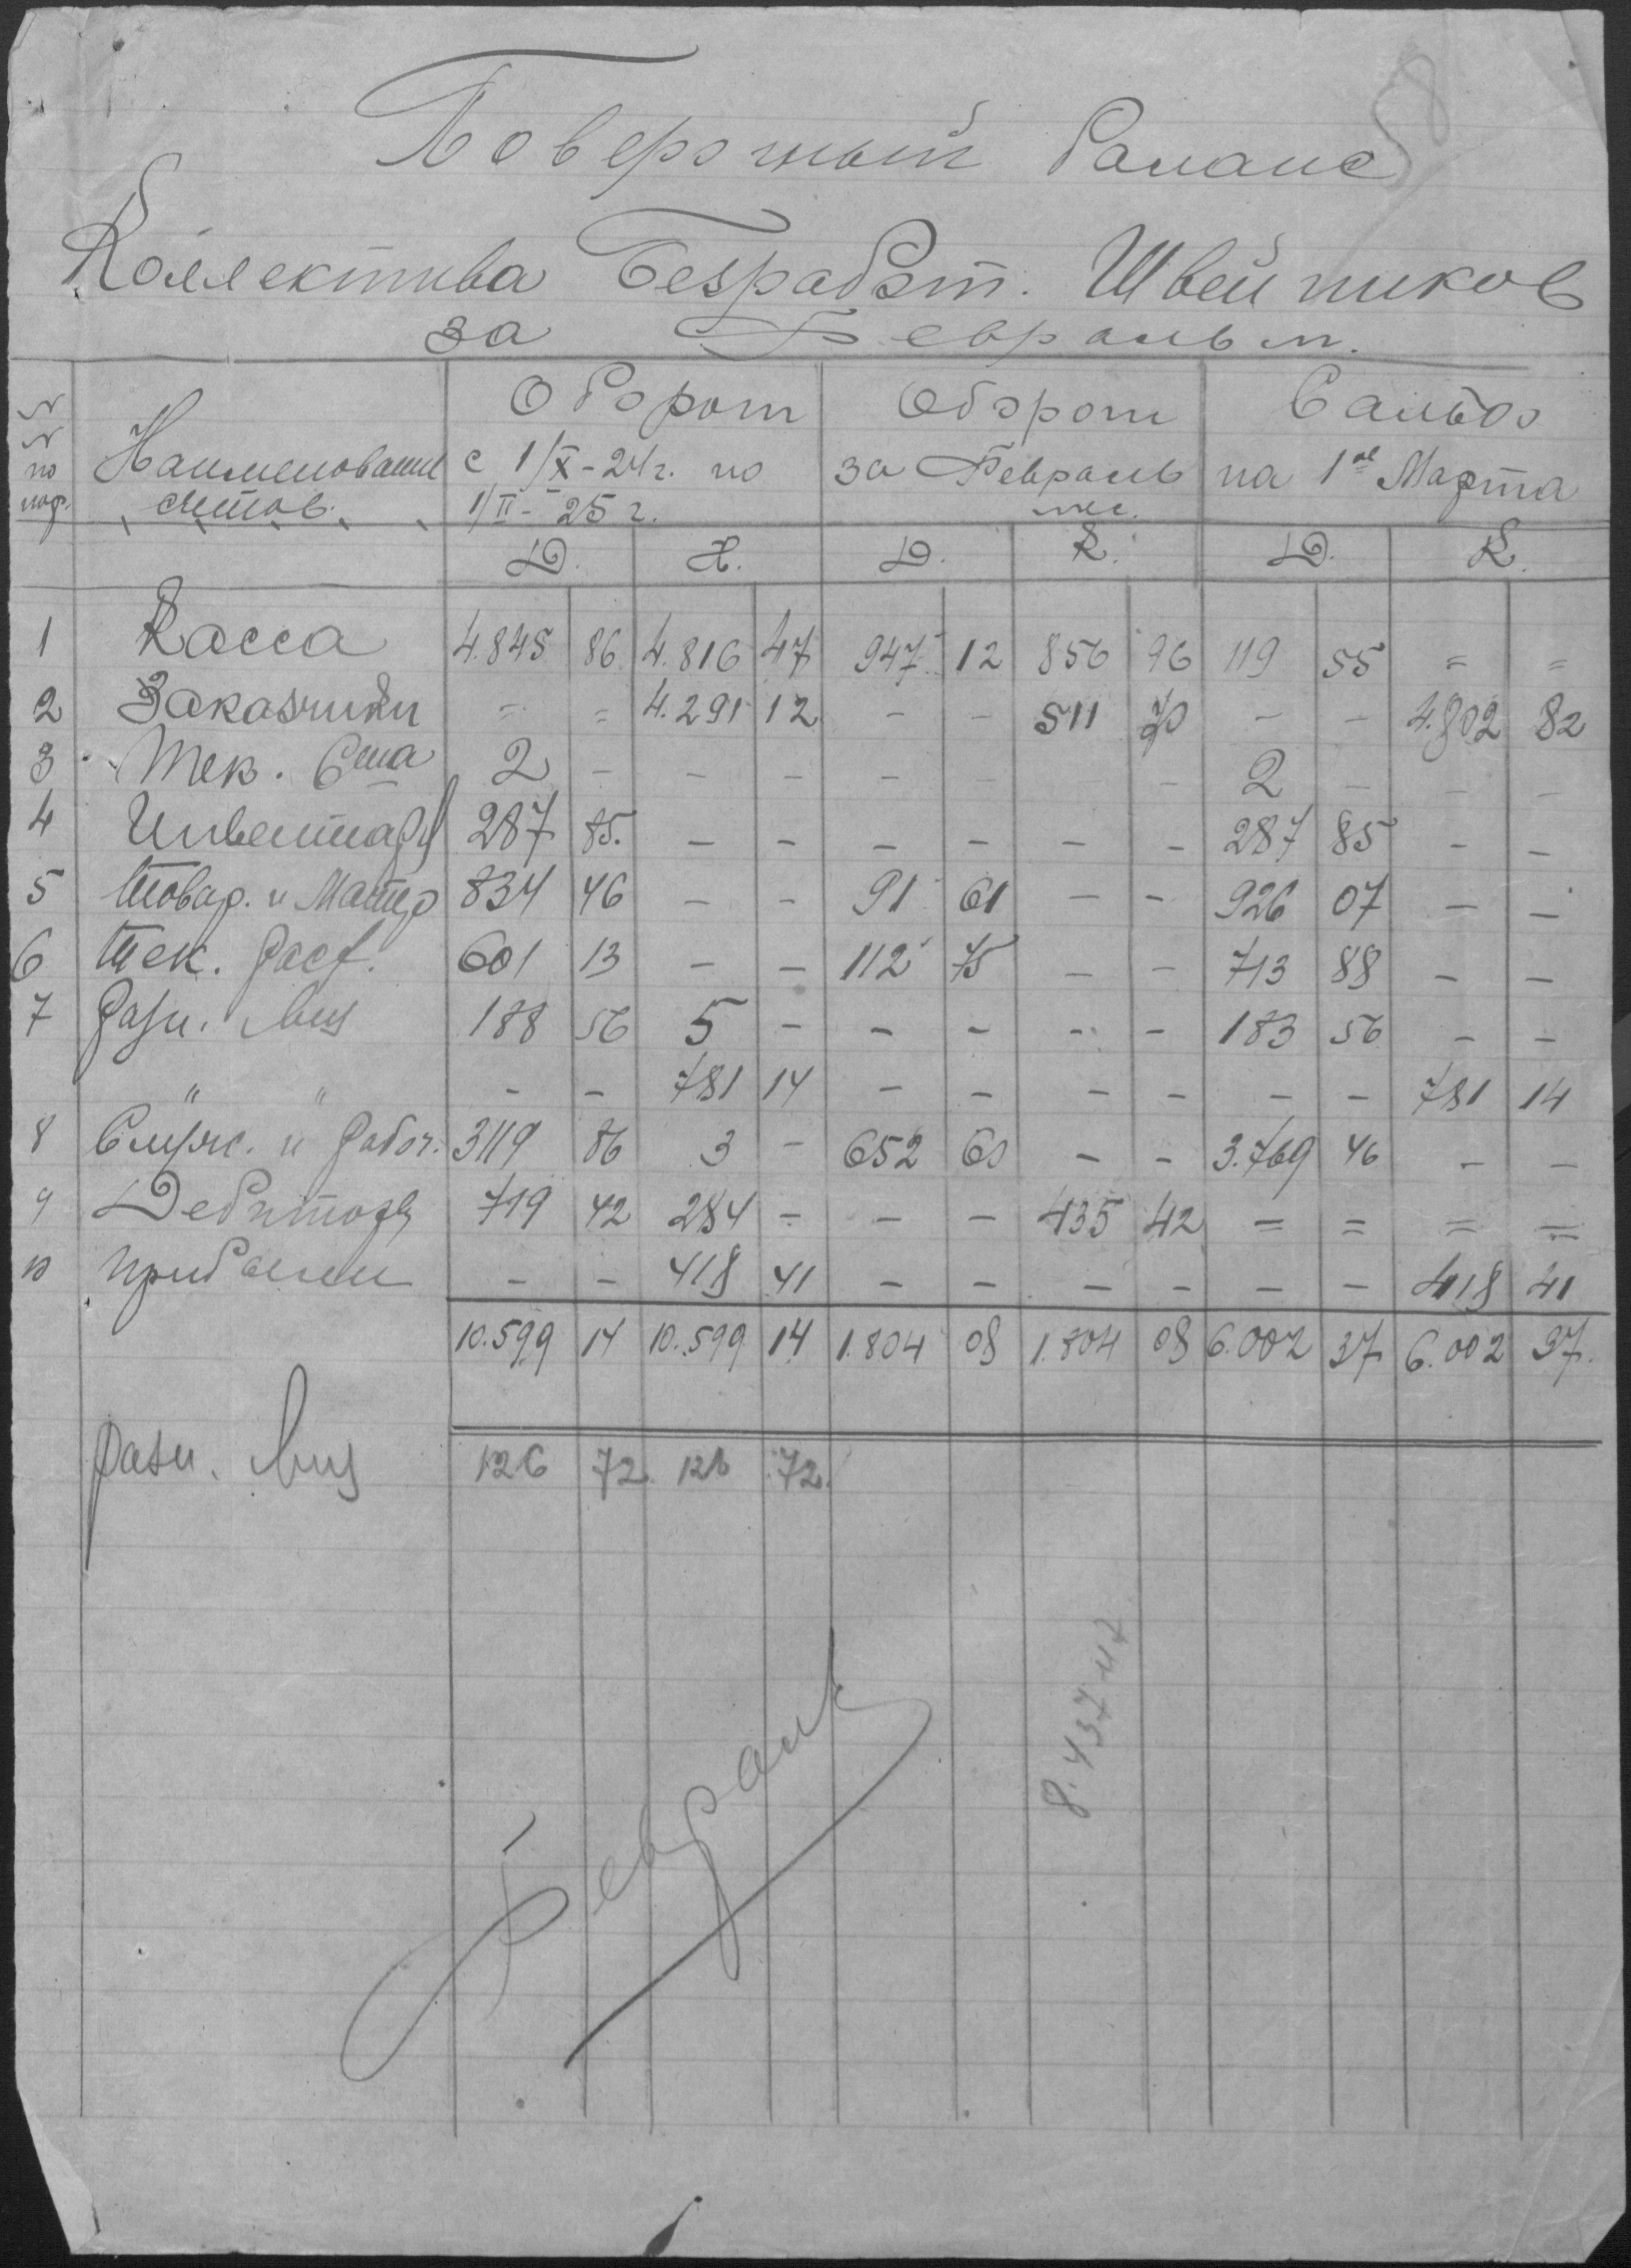 58
Поверочный баланс
Коллектива Безработ. Швейников
за Февраль м.
№ № по пор. Наименование счетов. Оборот с 1/X-24 г. по 1/II-25 г. Оборот за Февраль мес. Сальдо на 1ое Марта
Д. К. Д. К. Д. К.
1 Касса 4.845 86 4.816 47 947 12 856 96 119 55 = =
2 Заказчики = = 4.291 12 - - 511 70 - - 4.802 82
3 Тек. Сча 2 - - - - - - - 2 - - -
4 Инвентарь 287 85. - - - - - - 287 85 - -
5 Товар. и Матер 834 46 - - 91 61 - - 926 07 - -
6 Тек. Расх. 601 13 - - 112 75 - - 713 88 - -
7 Разн. лиц 188 56 5 - - - - - 183 56 - -
" " - - 781 14 - - - - - - 781 14
8 Служ. и рабоч. 3119 86 3 - 652 60 - - 3.769 46 - -
9 Дебиторы 719 42 284 - - - 435 42 = = = =
10 прибыли - - 418 41 - - - - - - 418 41
10.599 14 10.599 14 1.804 08 1.804 08 6.002 37 6.002 37.
разн. лиц 126 72 126 72.
Февраль
8.437 47